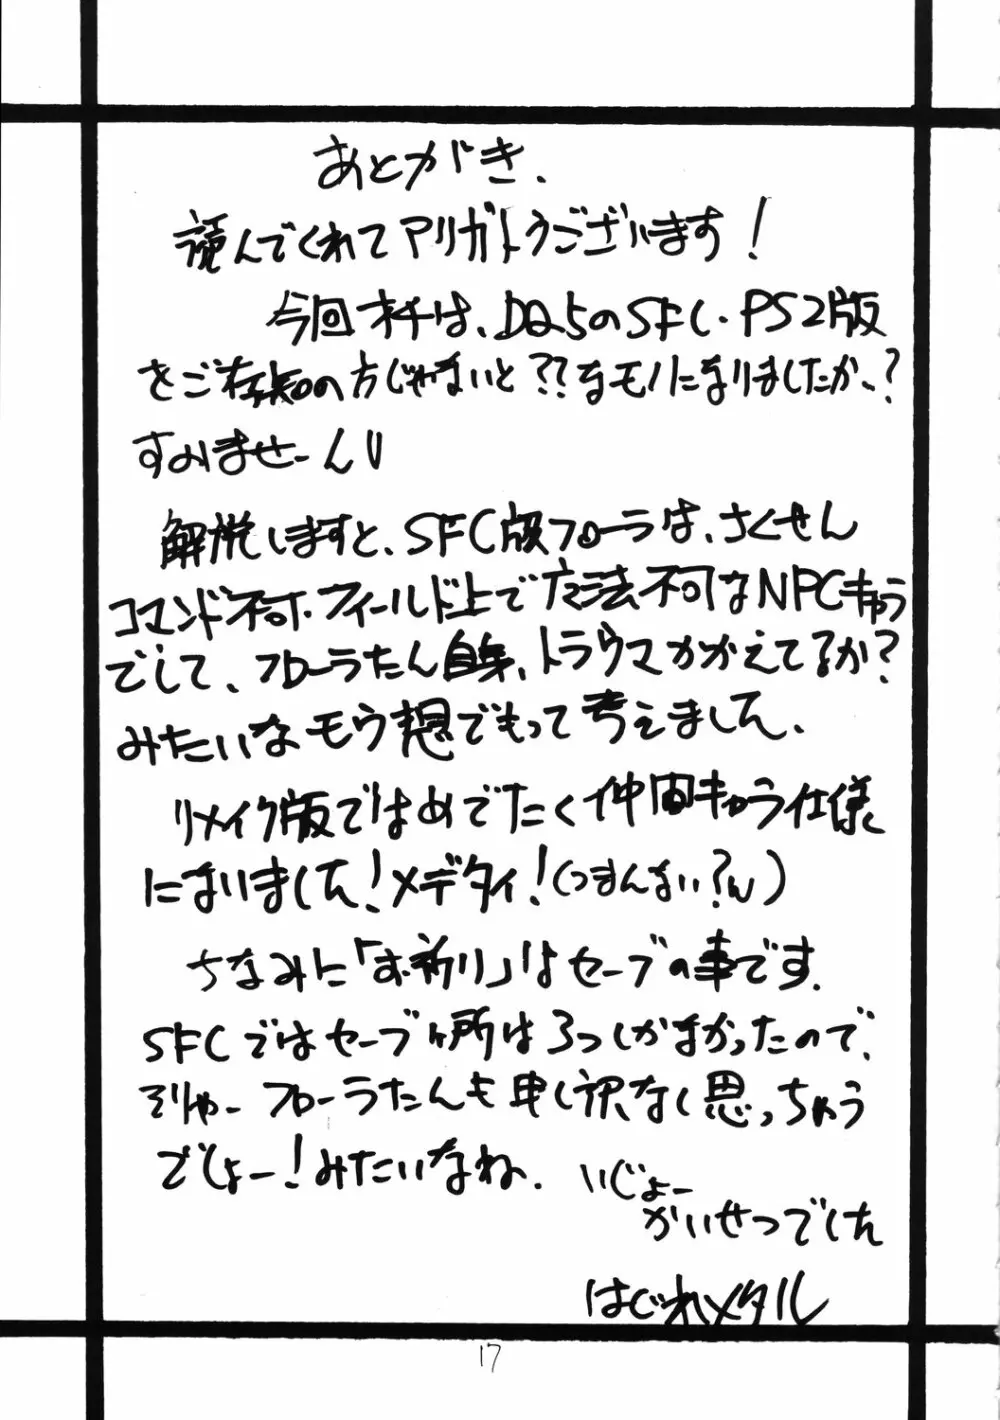 あとがき、
読んでくれてアリガトうございます！
今回オチは、DQ5のSFC・PS2版
をご存知の方じゃないと??なモノになりましたか、？
すみませーん
解説しますと、SFC版フローラは、さくせん
コマンド不可・フィールド上で魔法不可なNPCキャラ
でして、フローラたん自身、トラウマかかえてるか？
みたいなモウ想でもって考えました、
リメイク版ではめでたく仲間キャラ仕様
になりました！メデタイ！(つまんない？ん)
ちなみに「お祈り」はセーブの事です．
SFCではセーブヶ所は3っしかなかったので、
そりゃーフローラたんも申し訳なく思っちゃう
でしょー！みたいなね．
いじょー
かいせつでした
はぐれメタル
17